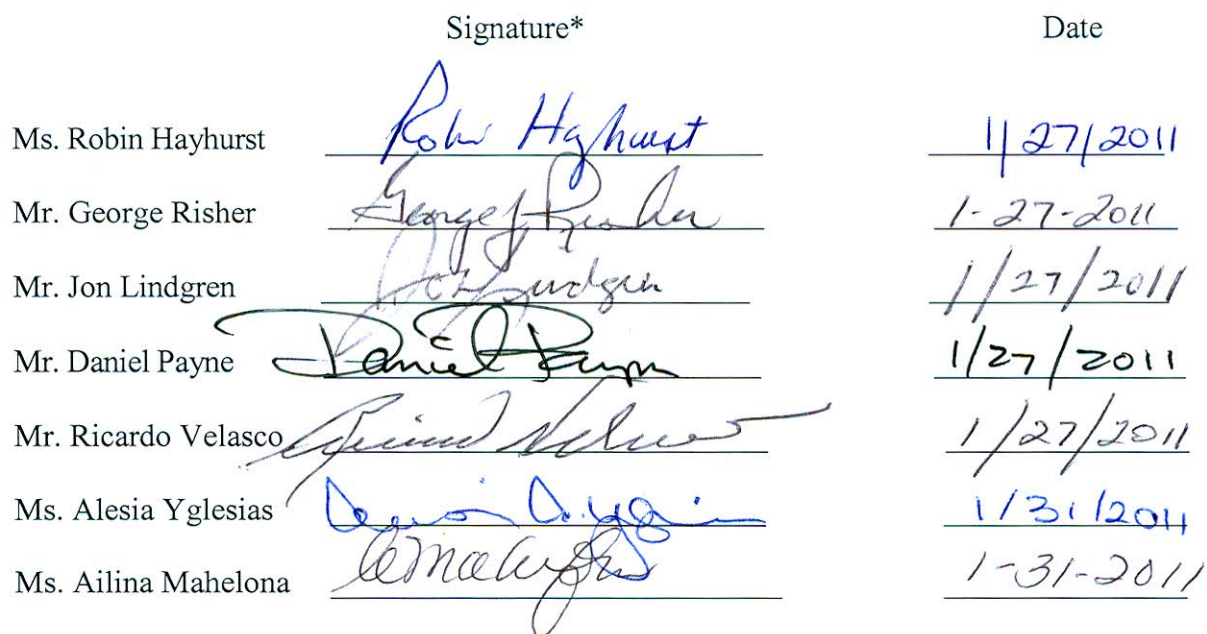 Signature* Date
Ms. Robin Hayhurst Robin Hayhurst 1/27/2011
Mr. George Risher George J Risher 1-27-2011
Mr. Jon Lindgren Jon Lindgren 1/27/2011
Mr. Daniel Payne Daniel Payne 1/27/2011
Mr. Ricardo Velasco 1/27/2011
Ms. Alesia Yglesias 1/31/2011
Ms. Ailina Mahelona 1-31-2011